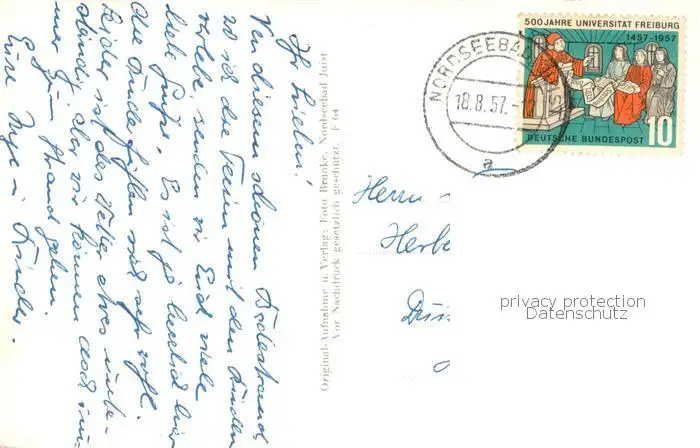 Ihr Lieben!
Von diesem schönen Badestrand
wo ich die Ferien mit den Kindern
verlebe, senden wir Euch viele
liebe Grüße. Es ist ja herrlich hier
die Kinder fühlen sich sehr wohl.
Leider ist das Wetter etwas unbe-
ständig aber wir können doch im-
mer zum Strand gehen.
Eure Inge u. Kinder.
Original-Aufnahme u. Verlag: Foto Brunke, Nordseebad Juist
Vor Nachdruck gesetzlich geschützt. F 64
500 JAHRE UNIVERSITÄT FREIBURG
1457-1957
DEUTSCHE BUNDESPOST 10
NORDSEEBAD
18.8.57.-
a
Herrn
Herbe
privacy protection
Datenschutz